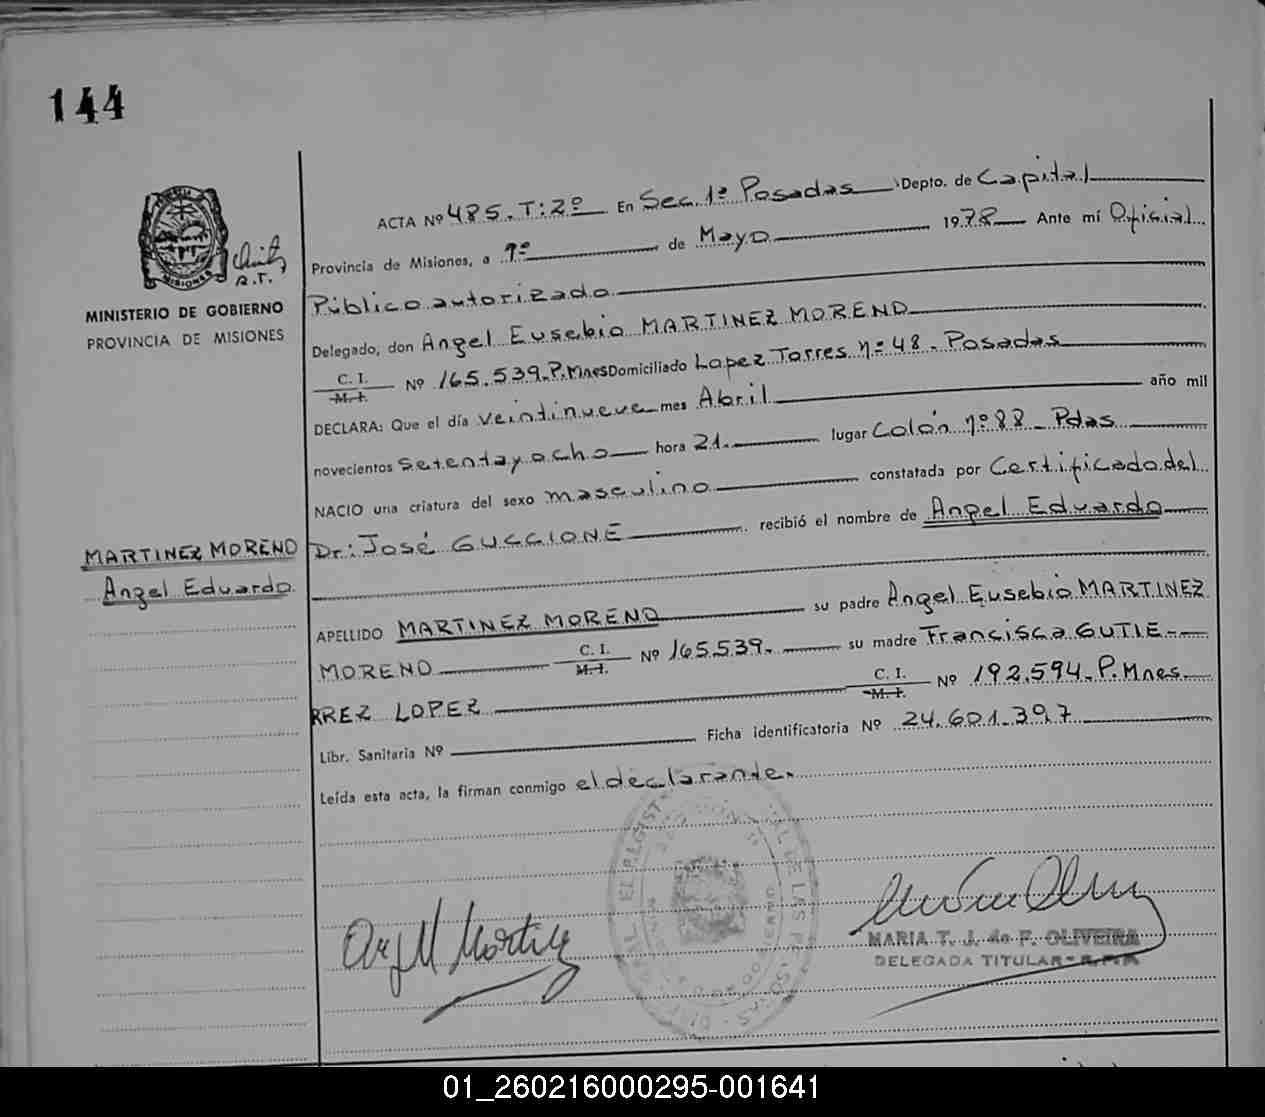 144
MINISTERIO DE GOBIERNO
PROVINCIA DE MISIONES
R.T.
ACTA Nº 485. T: 2º En Sec. 1ª Posadas Depto. de Capital
Provincia de Misiones, a 1º de Mayo 1978 Ante mí Oficial
Público autorizado
Delegado, don Angel Eusebio MARTINEZ MORENO
C. I. M. I. Nº 165.539. P. Mnes Domiciliado Lopez Torres nº 48 - Posadas
DECLARA: Que el día veintinueve mes Abril año mil
novecientos setentayocho hora 21. lugar Colón nº 88 - Pdas
NACIO una criatura del sexo masculino constatada por Certificado del
Dr: José GUCCIONE recibió el nombre de Angel Eduardo
MARTINEZ MORENO
Angel Eduardo
APELLIDO MARTINEZ MORENO su padre Angel Eusebio MARTINEZ
MORENO C. I. M. I. Nº 165539. su madre Francisca GUTIE-
RREZ LOPEZ C. I. M. I. Nº 192.594. P. Mnes
Libr. Sanitaria Nº Ficha identificatoria Nº 24.601.397
Leída esta acta, la firman conmigo el declarante.
MARIA T. J. de F. OLIVEIRA
DELEGADA TITULAR
01_260216000295-001641